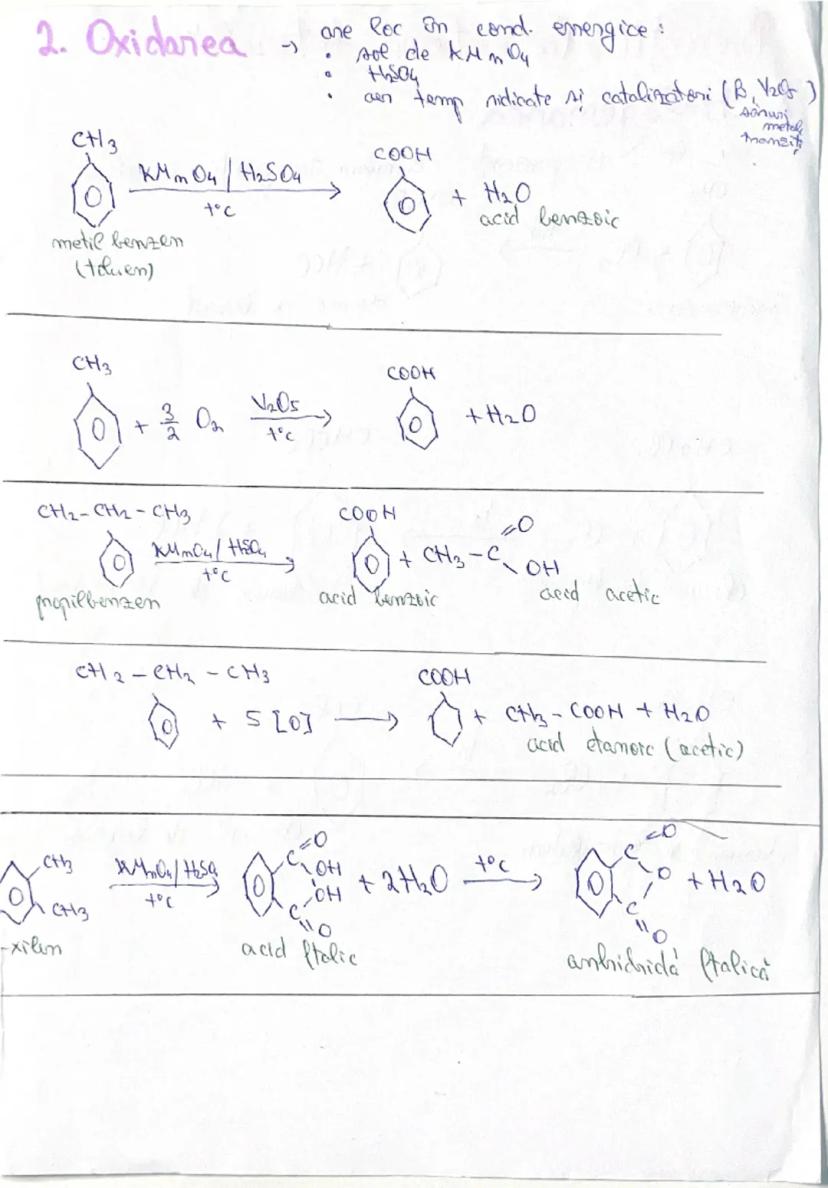 2. Oxidarea → are loc în cond. energice:
• sol de KMnO4
• H2SO4
• aer temp ridicate și catalizatori (B, V2O5)
săruri
metale
tranziț
CH3 KMnO4 / H2SO4 t°C COOH + H2O
metil benzen acid benzoic
(toluen)
CH3 + 3/2 O2 V2O5 t°C COOH + H2O
CH2-CH2-CH3 KMnO4 / H2SO4 t°C COOH + CH3-C =O OH
propilbenzen acid benzoic acid acetic
CH2-CH2-CH3 + 5 [O] → COOH + CH3-COOH + H2O
acid etanoic (acetic)
CH3 CH3 KMnO4 / H2SO4 t°C C =O OH OH C =O + 2H2O t°C C =O O C =O + H2O
-xilen acid ftalic anhidridă ftalică